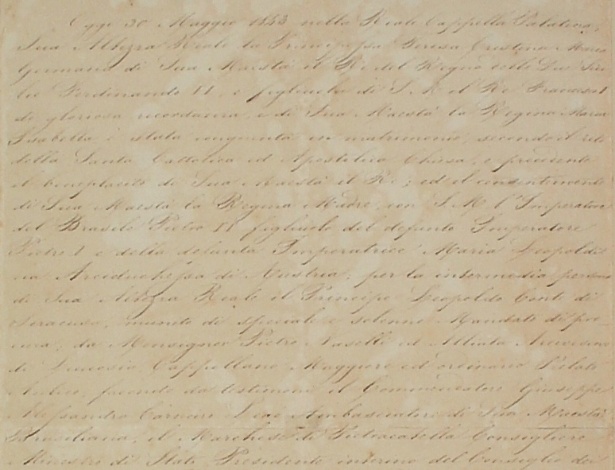 Oggi 30 Maggio 1843 nella Reale Cappella Palatina,
Sua Altezza Reale la Principessa Teresa Cristina Maria
Germana di Sua Maestà il Re del Regno delle Due Sici
lie Ferdinando II e figliuola di S. M. il Re Francesco I
di gloriosa ricordanza, e di Sua Maestà la Regina Maria
Isabella è stata congiunta in matrimonio, secondo il rito
della Santa Cattolica ed Apostolica Chiesa, e precedente
il beneplacito di Sua Maestà il Re; ed il consentimento
di Sua Maestà la Regina Madre, con S. M. l'Imperatore
del Brasile Pietro II figliuolo del defunto Imperatore
Pietro I e della defunta Imperatrice Maria Leopoldi
na Arciduchessa di Austria, per la intermedia persona
di Sua Altezza Reale il Principe Leopoldo Conte di
Siracusa, munito di speciale e solenne Mandato di pro
cura, da Monsignor Pietro Naselli ed Alliata Arcivescovo
di Leucosia Cappellano Maggiore ed ordinario Prelato
Aulico, facendo da testimoni il Commendatore Giuseppe
Alessandro Carneiro Leao Ambasciatore di Sua Maestà
Brasiliana, il Marchese di Pietracatella Consigliere
Ministro di Stato Presidente interino del Consiglio dei